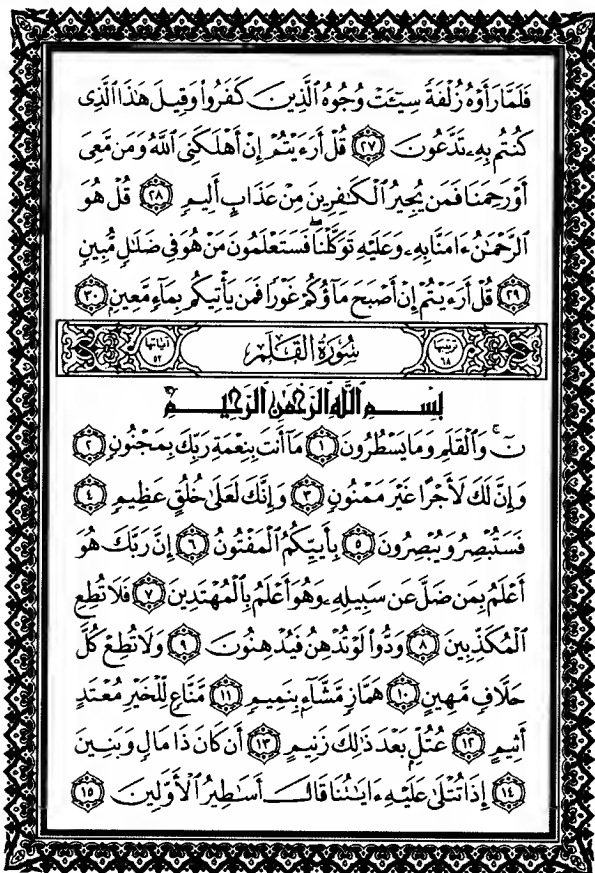 فَلَمَّا رَأَوْهُ زُلْفَةً سِيٓـَٔتْ وُجُوهُ ٱلَّذِينَ كَفَرُوا۟ وَقِيلَ هَـٰذَا ٱلَّذِى
كُنتُم بِهِۦ تَدَّعُونَ ٢٧ قُلْ أَرَءَيْتُمْ إِنْ أَهْلَكَنِىَ ٱللَّهُ وَمَن مَّعِىَ
أَوْ رَحِمَنَا فَمَن يُجِيرُ ٱلْكَـٰفِرِينَ مِنْ عَذَابٍ أَلِيمٍ ٢٨ قُلْ هُوَ
ٱلرَّحْمَـٰنُ ءَامَنَّا بِهِۦ وَعَلَيْهِ تَوَكَّلْنَا ۖ فَسَتَعْلَمُونَ مَنْ هُوَ فِى ضَلَـٰلٍ مُّبِينٍ
٢٩ قُلْ أَرَءَيْتُمْ إِنْ أَصْبَحَ مَآؤُكُمْ غَوْرًا فَمَن يَأْتِيكُم بِمَآءٍ مَّعِينٍ ٣٠
ترتيبها ٦٨ سُورَةُ ٱلْقَلَمِ آياتها ٥٢
بِسْمِ ٱللَّهِ ٱلرَّحْمَـٰنِ ٱلرَّحِيمِ
نٓ ۚ وَٱلْقَلَمِ وَمَا يَسْطُرُونَ ١ مَآ أَنتَ بِنِعْمَةِ رَبِّكَ بِمَجْنُونٍ ٢
وَإِنَّ لَكَ لَأَجْرًا غَيْرَ مَمْنُونٍ ٣ وَإِنَّكَ لَعَلَىٰ خُلُقٍ عَظِيمٍ ٤
فَسَتُبْصِرُ وَيُبْصِرُونَ ٥ بِأَييِّكُمُ ٱلْمَفْتُونُ ٦ إِنَّ رَبَّكَ هُوَ
أَعْلَمُ بِمَن ضَلَّ عَن سَبِيلِهِۦ وَهُوَ أَعْلَمُ بِٱلْمُهْتَدِينَ ٧ فَلَا تُطِعِ
ٱلْمُكَذِّبِينَ ٨ وَدُّوا۟ لَوْ تُدْهِنُ فَيُدْهِنُونَ ٩ وَلَا تُطِعْ كُلَّ
حَلَّافٍ مَّهِينٍ ١٠ هَمَّازٍ مَّشَّآءٍۭ بِنَمِيمٍ ١١ مَّنَّاعٍ لِّلْخَيْرِ مُعْتَدٍ
أَثِيمٍ ١٢ عُتُلٍّۭ بَعْدَ ذَٰلِكَ زَنِيمٍ ١٣ أَن كَانَ ذَا مَالٍ وَبَنِينَ
١٤ إِذَا تُتْلَىٰ عَلَيْهِ ءَايَـٰتُنَا قَالَ أَسَـٰطِيرُ ٱلْأَوَّلِينَ ١٥